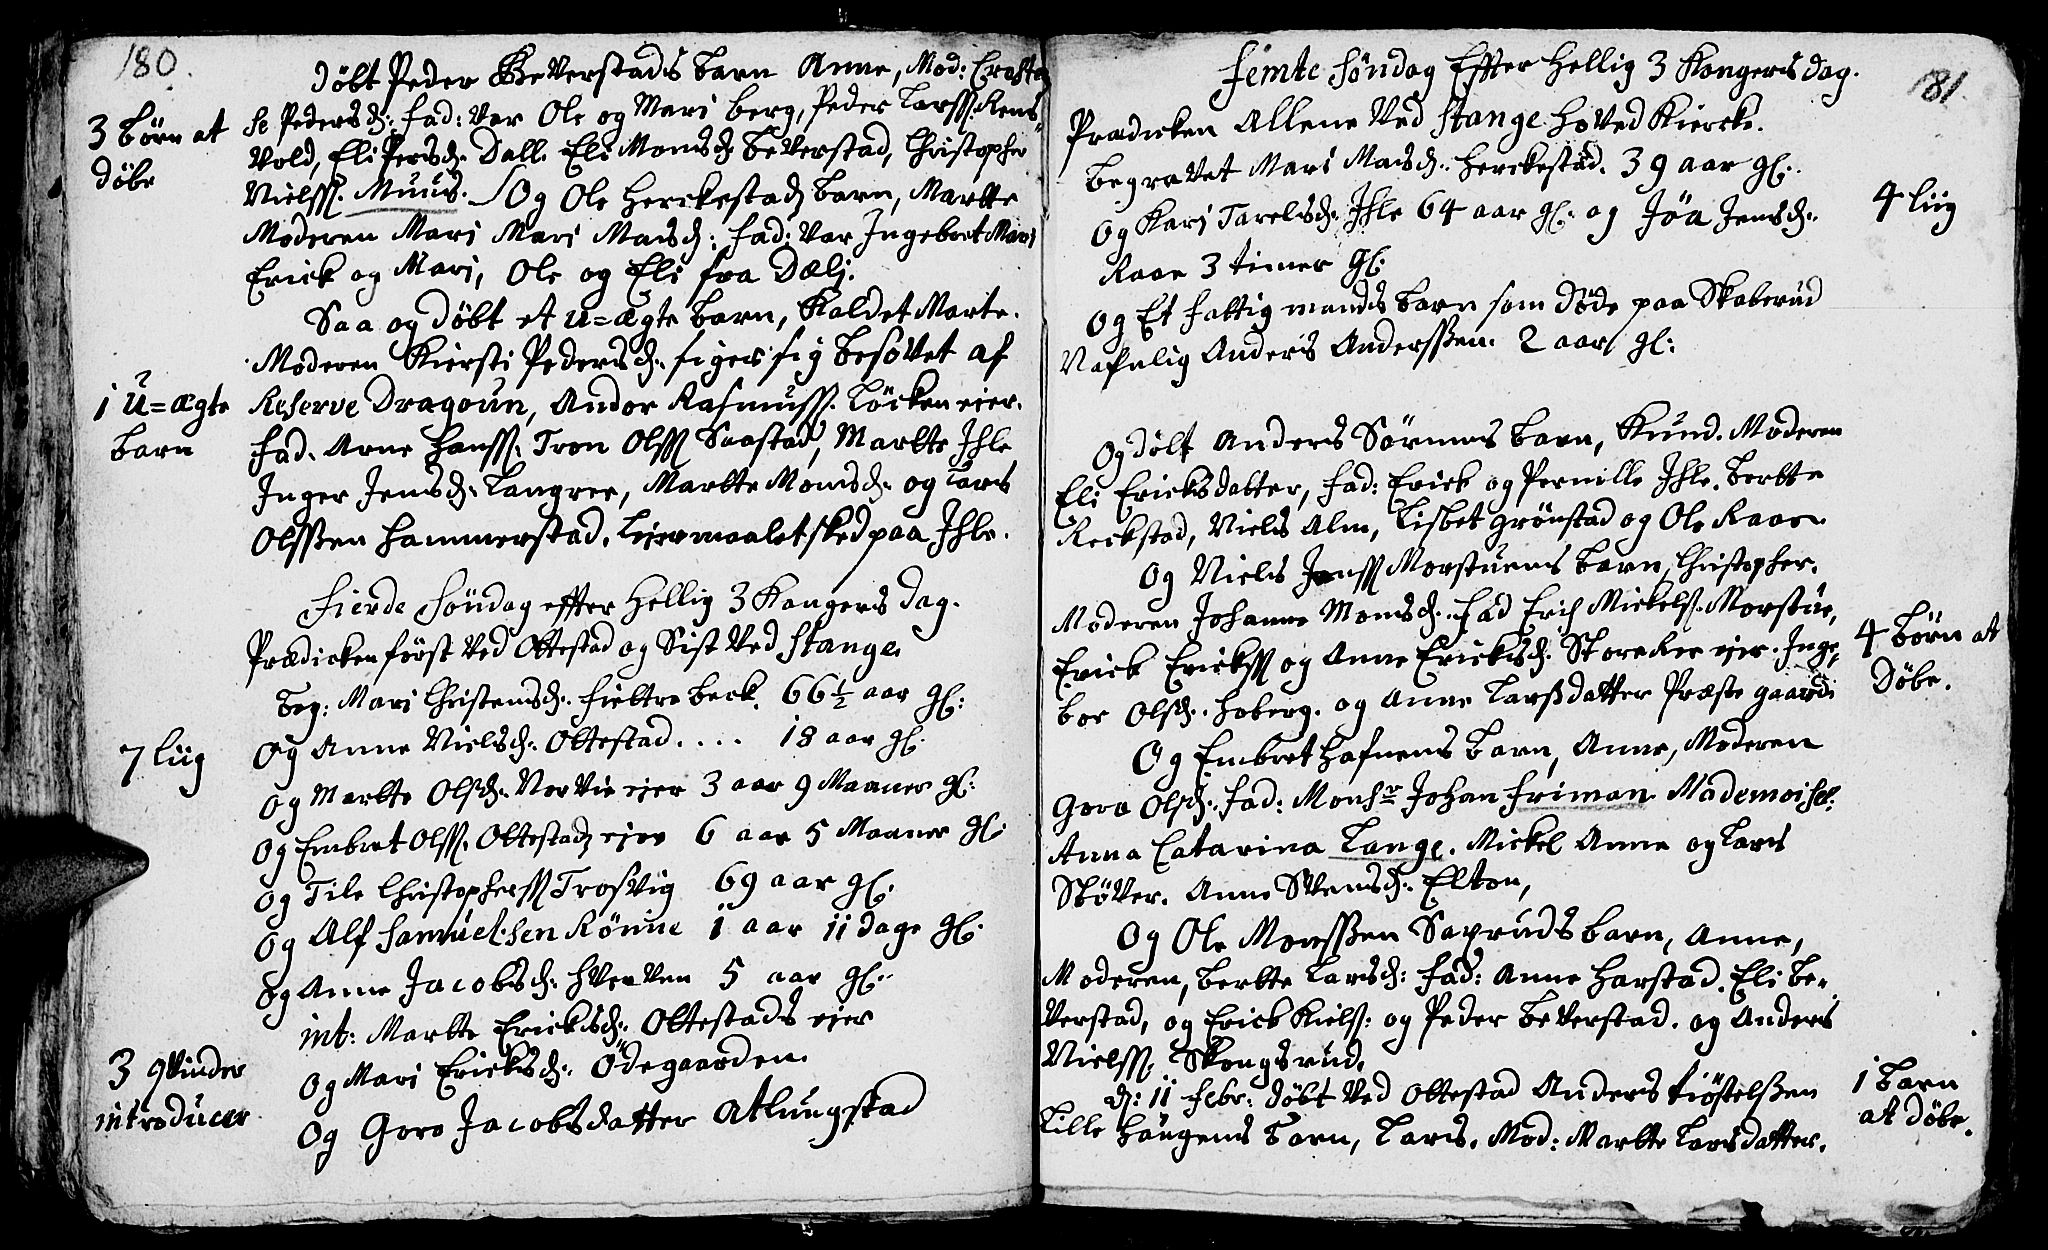 180.
döbt Peder Beverstads barn Anne, Mod:
se Pedersd: fad: var Ole og Mari berg, Peder Larss. Rens,
3 börn at
döbe
vold, Eli Persd. Dall. Eli Monsd. Beverstad, Christopher
Nielss. Muus. Og Ole Herckestads barn, Martte
Moderen Mari Mari Madsd: fad: var Ingebret Mari
Erick og Mari, Ole og Eli fra Dælj.
Saa og döbt et u=ægte barn, Kaldet Marte.
Moderen Kiersti Pedersd. siger sig besovet af
1 u=ægte
barn
Reserve Dragoun, Andor Rasmuss. Löcken ejer.
fad. Arne Hanss. Tron Olss. Saastad, Martte Ihle
Inger Jensd. Langrer, Martte Monsd. og Lars
Olssen Hammerstad. Leiermaalet sked paa Ihle.
Fierde Söndag effter Hellig 3 Kongers dag.
Prædicken först ved Ottestad og Sist ved Stange
Beg: Mari Christensd. Fieltre beck. 66½ aar gl:
7 Liig
Og Anne Nielsd. Ottestad.... 18 aar gl.
Og Martte Olsd. Norvie ejer 3 aar 9 Maaner gl:
Og Embret Olss. Ottestads ejer 6 aar 5 Maaner gl:
Og Tile Christopherss Trosvig 69 aar gl.
Og Alf Samuelsen Rönne 1 aar 11 dage gl.
Og Anne Jacobsd. Hverven 5 aar gl.
int: Martte Ericksd. Ottestads ejer
3 qvinder
introducer
Og Mari Ericksd. Ödegaarden.
Og Goro Jacobsdatter Atlungstad
181.
Femte Söndag Effter Hellig 3 Kongers dag.
Prædicken Allene ved Stange Hoved Kiercke.
begravet Mari Madsd. Herckestad. 39 aar gl.
4 Liig
Og Kari Tarelsd. Ihle 64 aar gl. og Jöa Jensd.
Raae 3 timer gl.
Og Et fattig mands barn som döde paa Skaberud
Nafnlig Anders Anderssen. 2 aar gl:
Og döbt Anders Sörums barn, Knud. Moderen
Eli Ericksdatter, fad: Erick og Pernille Ihle. Bertte
Reckstad, Niels Alm, Lisbet Grönstad og Ole Raae.
Og Niels Jenss Morstuens barn, Christopher.
Moderen Johanne Monsd. fad Erich Mickels. Morstue,
4 börn at
Döbe.
Erick Erickss og Anne Ericksd. Storeker ejer. Inge,
bor Olsd. Hoberg. og Anne Larsdatter Præstegaard
Og Embret Hafnens barn, Anne, Moderen
Goro Olsd. fad: Monsr Johan Friman Mademoisel:
Anna Catarina Lange. Mickel Anne og Lars
Stöver. Anne Svensd. Elton,
Og Ole Monssen Saxruds barn, Anne,
Moderen, Bertte Larsd: fad: Anne Harstad. Eli Be,
verstad, og Erick Kiels: og Peder Beverstad. og Anders
Nielss. Skongsrud.
d: 11 Febr: döbt ved Ottestad Anders Kiöstelssen
1 barn
at döbe.
Lille Haugens barn, Lars. Mod: Martte Larsdatter.